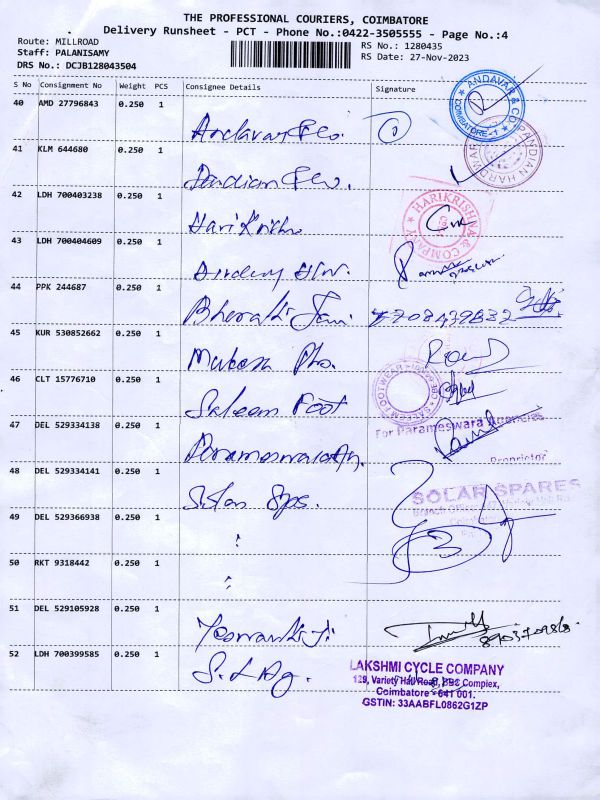 THE PROFESSIONAL COURIERS, COIMBATORE
Delivery Runsheet - PCT - Phone No.:0422-3505555 - Page No.:4
Route: MILLROAD
RS No.: 1280435
Staff: PALANISAMY
RS Date: 27-Nov-2023
DRS No.: DCJB128043504
S No Consignment No Weight PCS Consignee Details Signature
40 AMD 27796843 0.250 1
Andavar & Co.
ANDAVAR & COMPANY COIMBATORE-1
41 KLM 644680 0.250 1
Pandian & Co.
PANDIAN HARDWAR
42 LDH 700403238 0.250 1
Hari Krishna
HARIKRISHNA & COMPANY
43 LDH 700404609 0.250 1
44 PPK 244687 0.250 1
Bharathi
7708439832
45 KUR 530852662 0.250 1
Mukesh
46 CLT 15776710 0.250 1
Saleem Foot
SALEEM FOOTWEAR
47 DEL 529334138 0.250 1
Parameswara Ag.
For Parameswara Agencies
Proprietor
48 DEL 529334141 0.250 1
Solar Sps.
SOLAR SPARES
Branch Office
49 DEL 529366938 0.250 1
"
50 RKT 9318442 0.250 1
"
51 DEL 529105928 0.250 1
52 LDH 700399585 0.250 1
LAKSHMI CYCLE COMPANY
129, Variety Hall Road, BBC Complex,
Coimbatore - 641 001.
GSTIN: 33AABFL0862G1ZP